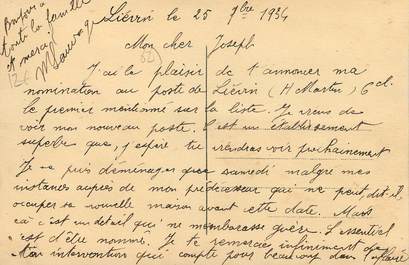 Bonjour à
toute la famille
et merci
Liévin le 25 9bre 1934
Mon cher Joseph
J'ai le plaisir de t'annoncer ma
nomination au poste de Liévin (H Martin) 6 cl.
le premier mentionné sur la liste. Je viens de
voir mon nouveau poste. C'est un établissement
superbe que, j'espère tu viendras voir prochainement
Je ne puis déménager que samedi malgré mes
instances auprès de mon prédécesseur qui ne peut, dit-il,
occuper sa nouvelle maison avant cette date. Mais
ça c'est un détail qui ne m'embarasse guère. L'essentiel
c'est d'être nommé. Je te remercie infiniment de
ton intervention qui compte pour beaucoup dans l'affaire